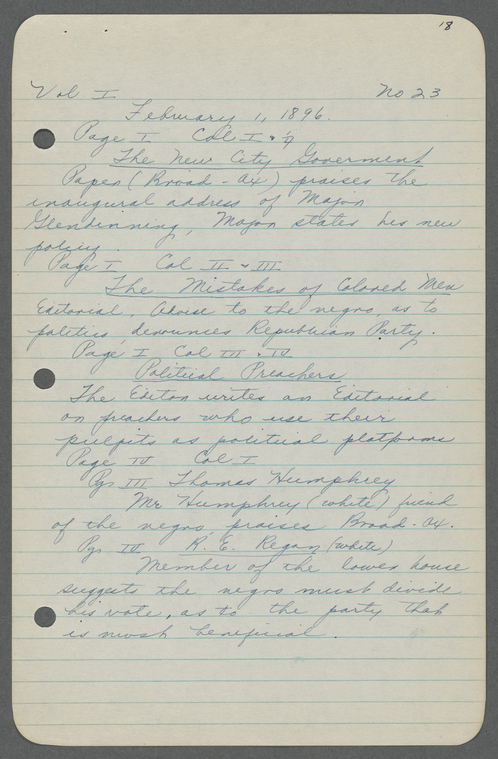 18
Vol I No 23
February 1, 1896.
Page I Col I &
The New City Goverment
Paper (Broad-Ax) praises the
inaugural address of Major
Glendinning, Major states his new
policy.
Page I Col II & III
The Mistakes of Colored Men
Editorial, Advise to the negro, as to
politics, denounces Republican Party.
Page I Col III & IV
Political Preachers
The Editor writes an Editorial
on preachers who use their
pulpits as political platforms
Page IV Col I
Pgr III Thomas Humphrey
Mr Humphrey (white) friend
of the negro, praises Broad-Ax.
Pgr IV R. E. Regan (white)
Member of the lower house
suggests the negro must divide
his vote, as to the party that
is most beneficial.